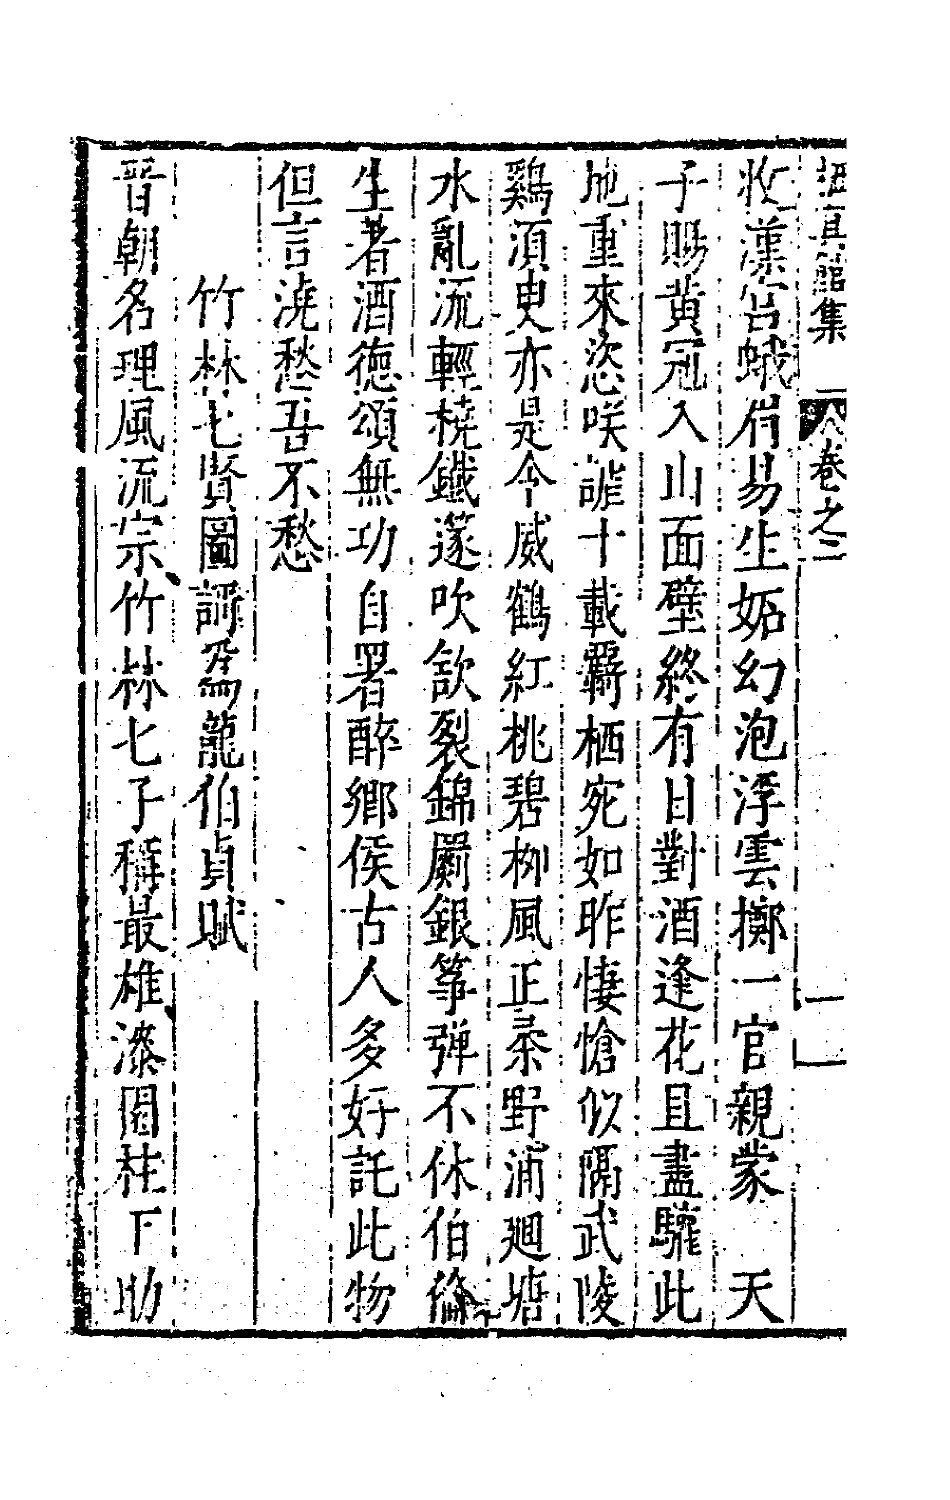 棲真館集 卷之二
收漢宮蛾眉易生妬幻泡浮雲擲一官親蒙 天
子賜黃冠入山面壁終有日對酒逢花且盡驩此
地重來恣咲謔十載羇栖宛如昨悽愴似隔武陵
鷄須臾亦是令威鶴紅桃碧栁風正柔野浦廻塘
水亂流輕橈鐵篴吹歙裂錦罽銀箏弹不休伯倫
生著酒徳頌無功自署醉鄉侯古人多好託此物
但言澆愁吾不愁
竹林七賢圖詩爲龍伯貞賦
晉朝名理風流宗竹林七子稱最雄漆園柱下助